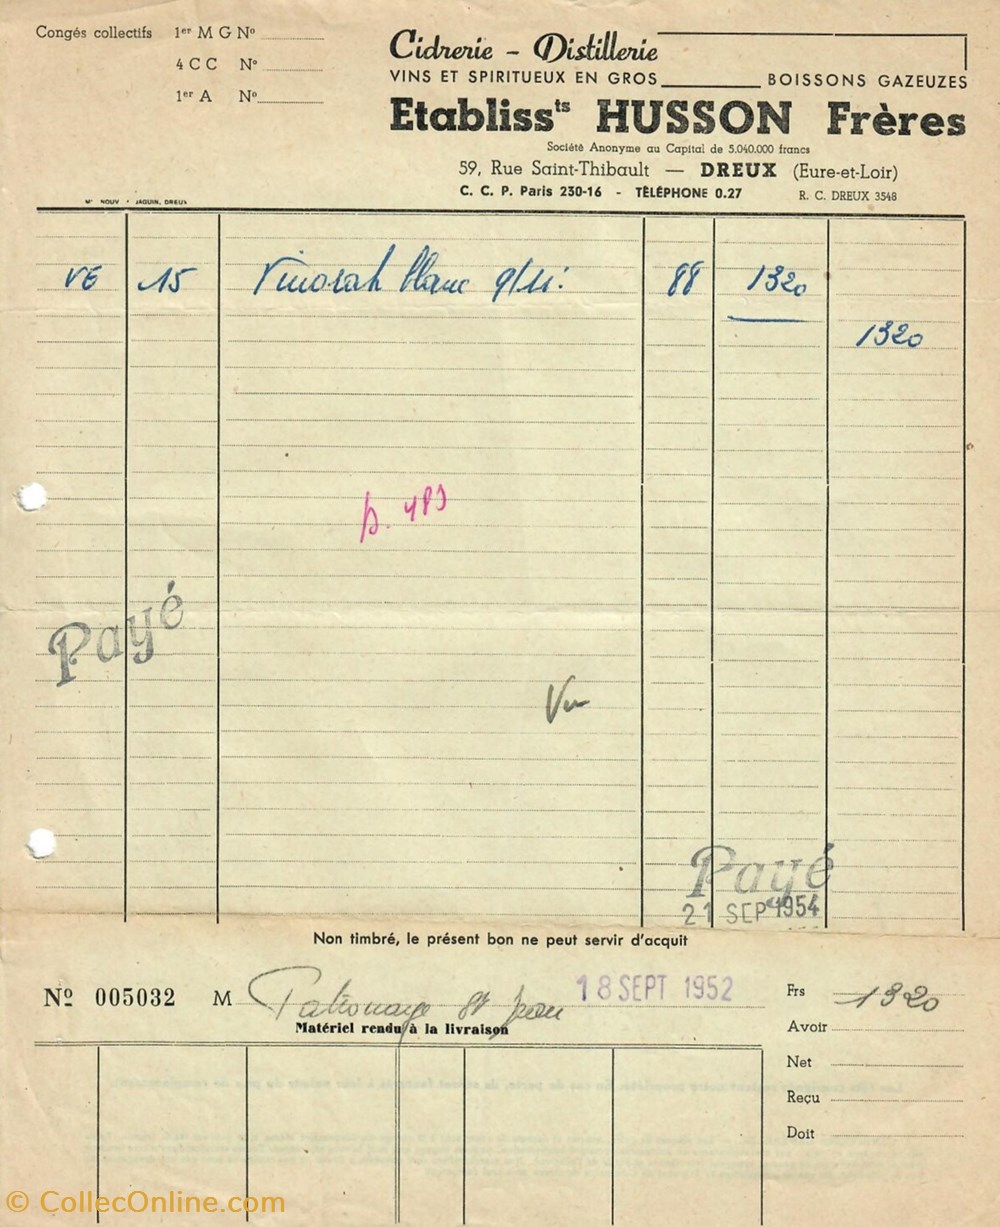 Congés collectifs 1er M G No
4 C C No
1er A No
Cidrerie - Distillerie
VINS ET SPIRITUEUX EN GROS BOISSONS GAZEUZES
Etablissts HUSSON Frères
Société Anonyme au Capital de 5.040.000 francs
59, Rue Saint-Thibault — DREUX (Eure-et-Loir)
C. C. P. Paris 230-16 - TÉLÉPHONE 0.27 R. C. DREUX 3548
JAQUIN, DREUX
VE 15 blanc 88 1320
1320
Payé
Vu
Payé
21 SEP 1954
Non timbré, le présent bon ne peut servir d'acquit
No 005032 M Patronage St Jean 18 SEPT 1952 Frs 1320
Matériel rendu à la livraison
Avoir
Net
Reçu
Doit
© CollecOnline.com